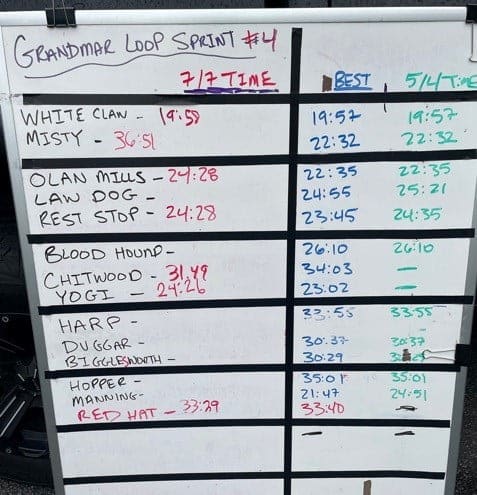 GRANDMAR LOOP SPRINT #4
7/7 TIME BEST 5/4 TIME
WHITE CLAW - 19:58 19:57 19:57
MISTY - 36:51 22:32 22:32
OLAN MILLS - 24:28 22:35 22:35
LAW DOG - 24:55 25:21
REST STOP - 24:28 23:45 24:35
BLOOD HOUND - 26:10 26:10
CHITWOOD - 31:49 34:03 —
YOGI - 24:26 23:02 —
HARP - 33:55 33:55
DUGGAR - 30:37 30:37
BIGGLESWORTH - 30:29
HOPPER - 35:01 35:01
MANNING - 21:47 24:51
RED HAT - 33:29 33:40 —
— —